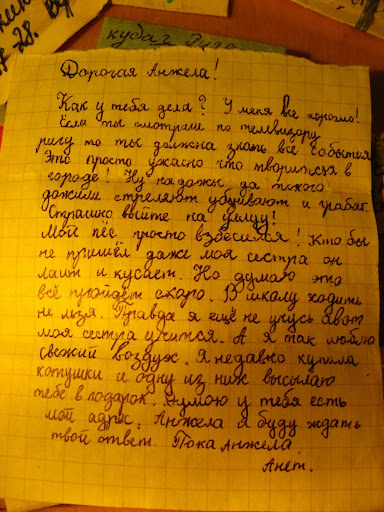 куда? Рига
28.
Дорогая Анжела!
Как у тебя дела? У меня все хорошо!
Если ты смотриш по телевизору
ригу то ты должна знать все события
Это просто ужасно что творится в
городе! Ну надоже да такого
дожили стреляют убивают и грабят.
Страшно выйте на улицу!
Мой пёс просто взбесился! Кто бы
не пришёл даже моя сестра он
лаит и кусает. Но думаю это
всё пройдёт скоро. В школу ходить
не льзя. Правда я ещё не учусь а вот
моя сестра учится. А я так люблю
свежий воздух. Я недавно купила
катушки и одну из них высылаю
тебе в подарок. Думою у тебя есть
мой адрес. Анжела я буду ждать
твой ответ. Пока Анжела
Анет.